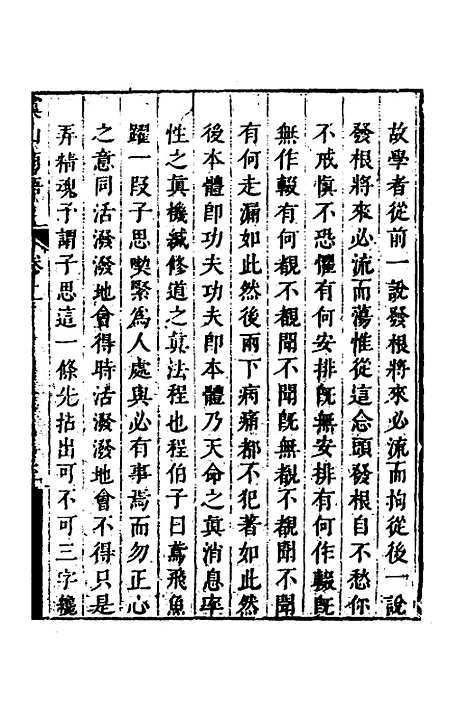 故學者從前一說發根將來必流而拘從後一說
發根將來必流而蕩惟從這念頭發根自不愁你
不戒愼不恐懼有何安排旣無安排有何作輟旣
無作輟有何覩不覩聞不聞旣無覩不覩聞不聞
有何走漏如此然後兩下病痛都不犯著如此然
後本體卽功夫功夫卽本體乃天命之眞消息率
性之眞機緘修道之眞法程也程伯子曰鳶飛魚
躍一段子思喫緊爲人處與必有事焉而勿正心
之意同活潑潑地會得時活潑潑地會不得只是
弄精魂子謂子思這一條先拈出可不可三字纔